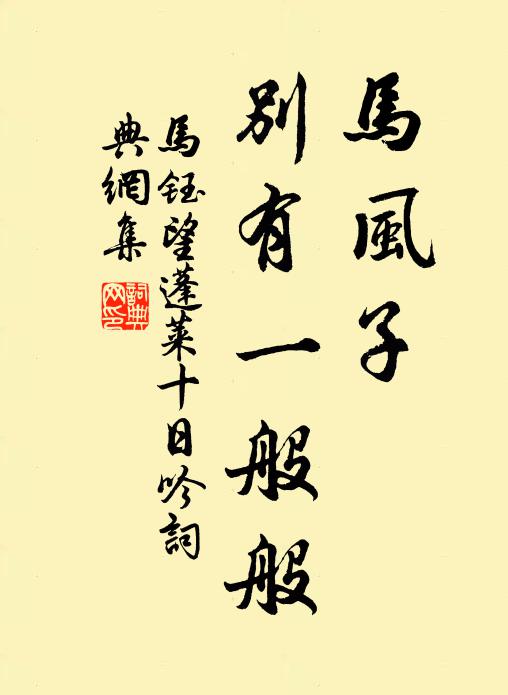 馬風子
別有一般般
馬鈺望蓬萊十日吟詞
典網集
詞典
网印